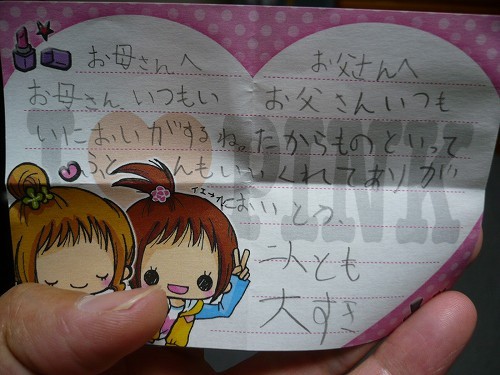 お母さんへ
お母さん、いつもい
いにおいがするね。
ふと んもいい
におい
お父さんへ
お父さんいつも
たからものといって
くれてありが
とう、
二人とも
大すき
PINK